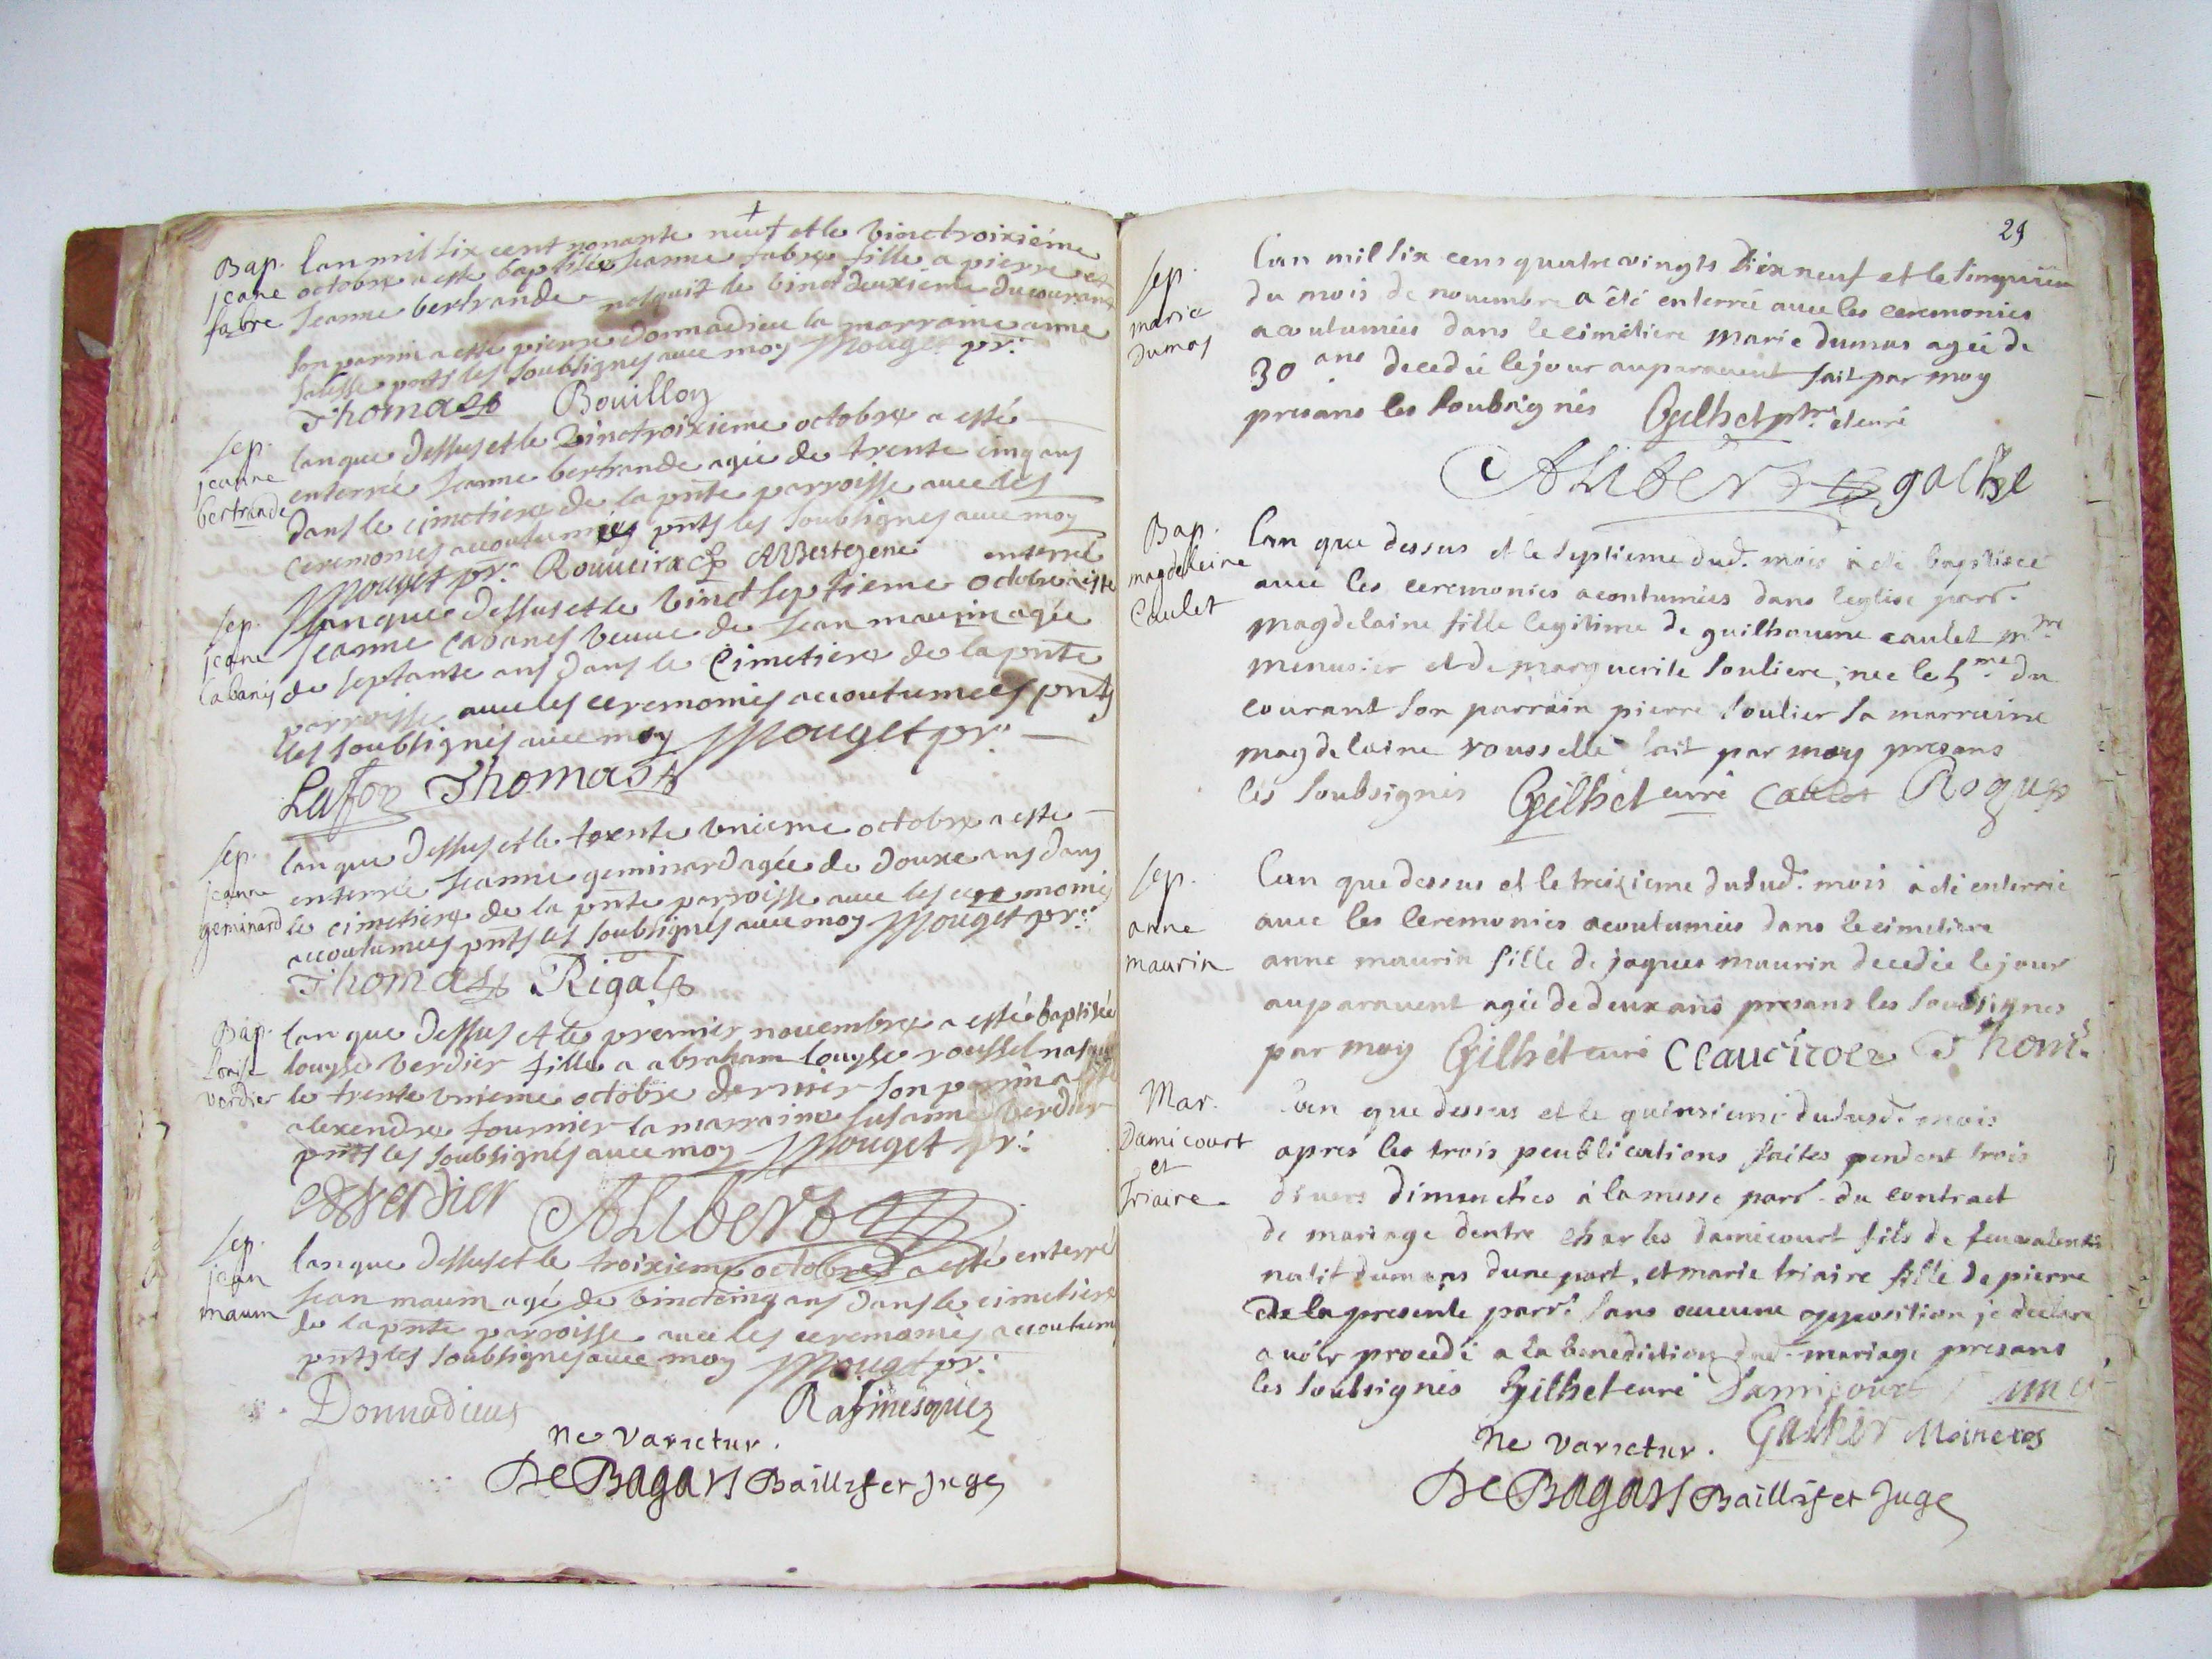 Bap.
jeane
fabre
lan mil six cent nonante neuf et le vinctroixiéme
octobre a esté baptisée Jeanne fabre fille a pierre et
Jeanne bertrande nasquit le vinct deuxieme du courant
son parrin a esté pierre donnadieu la marraine anne
pnts les soubsignes avec moy Mouget pr.
Thomas Bouillon
sep.
jeanne
bertrande
lan que dessus et le vinctroixieme octobre a esté
enterrée Jeanne bertrande agée de trente cinq ans
dans le cimetiere de la pnte parroisse avec les
ceremonies accoutumées pnts les soubsignes avec moy
Mouget pr. Rouveirac
sep.
jeane
Cabanes
lan que dessus et le vinct septieme octobre a esté enterrée
Jeanne Cabanes veuve de Jean maurin agée
de septante ans dans le Cimetiere de la pnte
parroisse avec les ceremonies accoutumees pnts
les soubsignés avec moy Mouget pr.
Laffon Thomas
sep.
jeanne
geminard
lan que dessus et le trente unieme octobre a esté
enterrée Jeanne geminard agée de douxe ans dans
le cimetiere de la pnte parroisse avec les ceremonies
accoutumees pnts les soubsignés avec moy Mouget pr.
Thomas Rigal
Bap.
Loise
verdier
lan que dessus et le premier novembre a esté baptisée
louyse verdier fille a abraham louyse roussel nasquit
le trente unieme octobre dernier son parrin a esté
alexendre fournier la marraine susanne verdier
pnts les soubsignés avec moy Mouget pr.
verdier Alibert
sep.
jean
maurin
lan que dessus et le troixieme octobre a esté enterré
Jean maurin agé de vinctcinq ans dans le cimetiere
de la pnte parroisse avec les ceremonies accoutum
pnts les soubsignes avec moy Mouget pr.
Donnadieu Rafinesque
ne varietur.
De Bagars Baillif et Juge
29
sep.
marie
dumas
Lan mil six cens quatrevingts dixneuf et le sinquieme
du mois de novembre a été enterreé avec les ceremonies
acoutumées dans le cimetiere marie dumas agée de
30 ans decedée le jour auparavent fait par moy
presans les soubsignés Gilhet ptre et curé
Alibert gache
Bap.
magdeleine
Caulet
Lan que dessus et le septieme dud. mois a été baptisée
avec les ceremonies acoutumées dans leglise parr.
magdelaine fille legitime de guilhaume caulet mre
menusier et de marguerite souliere, née le 5me du
courant son parrain pierre soulier sa marraine
magdelaine rousselle fait par moy presans
les soubsignés Gilhet curé Caulet Roque
sep.
anne
maurin
Lan que dessus et le treizieme dudud. mois a été enterrée
avec les ceremonies acoutumées dans le cimetiere
anne maurin fille de jaques maurin decedée le jour
auparavent agée de deux ans presans les soubsignes
par moy Gilhet curé Thom.
Mar.
Damicourt
et
Triaire
Lan que dessus et le quinsieme dudusd. mois
aprés les trois peublications faites pendent trois
divers dimenches a la messe parr. du contract
de mariage dentre charles damicourt fils de feu
natif dune part, et marie triaire fille de pierre
de la presente parr. sans aucune opposition je declare
avoir procedé a la benediction dud. mariage presans
les soubsignés Gilhet curé Damicourt
Gasker
ne varietur.
De Bagars Baillif et Juge